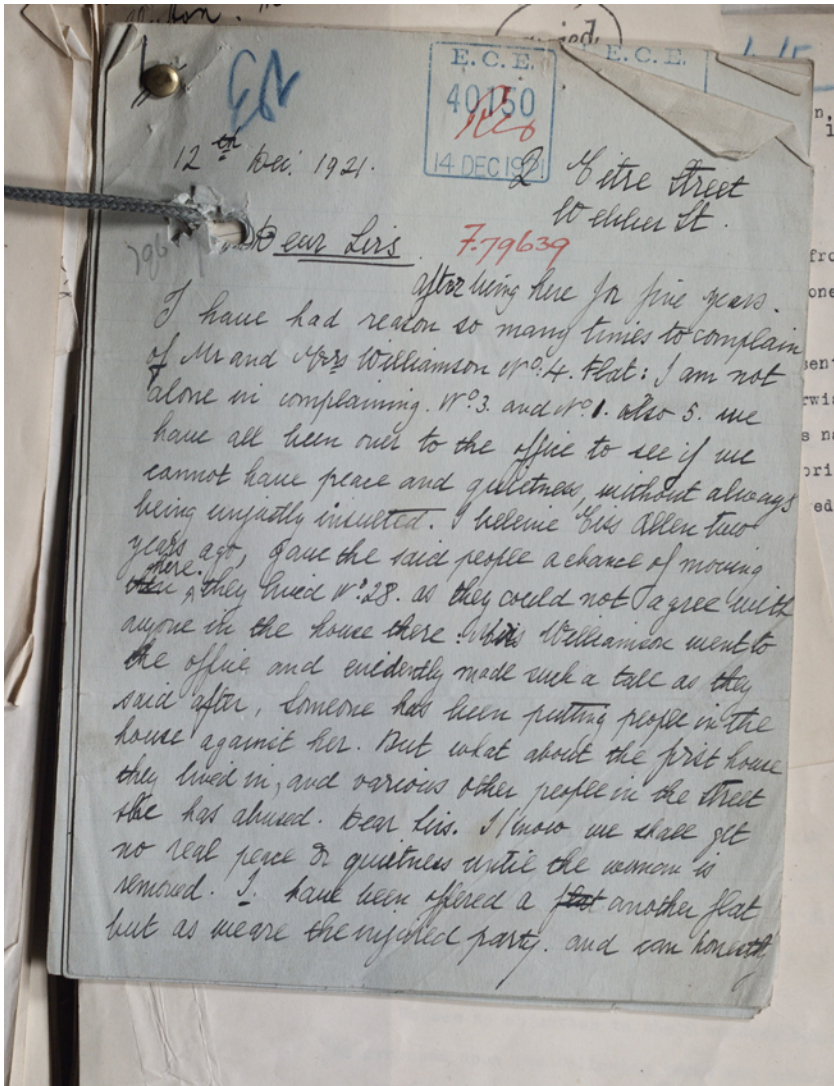 E. C. E.
40150
14 DEC 1921
E. C. E.
12th Dec. 1921.
2 Mitre Street
Webber St.
Dear Sirs
7.79639
after being here for five years.
I have had reason so many times to complain
of Mr and Mrs Williamson No. 4. Flat: I am not
alone in complaining. No 3. and No 1. also 5. we
have all been over to the office to see if we
cannot have peace and quietness, without always
being unjustly insulted. I beleive Miss Allen two
years ago, gave the said people a chance of moving
here. they lived No. 28. as they could not agree with
anyone in the house there. Mrs Williamson went to
the office and evidently made such a tale as they
said after, someone has been putting people in the
house against her. But what about the first house
they lived in, and various other people in the street
she has abused. Dear Sirs. I know we shall get
no real peace or quietness until the woman is
removed. I. have been offered a flat another flat
but as we are the injured party. and can honestly